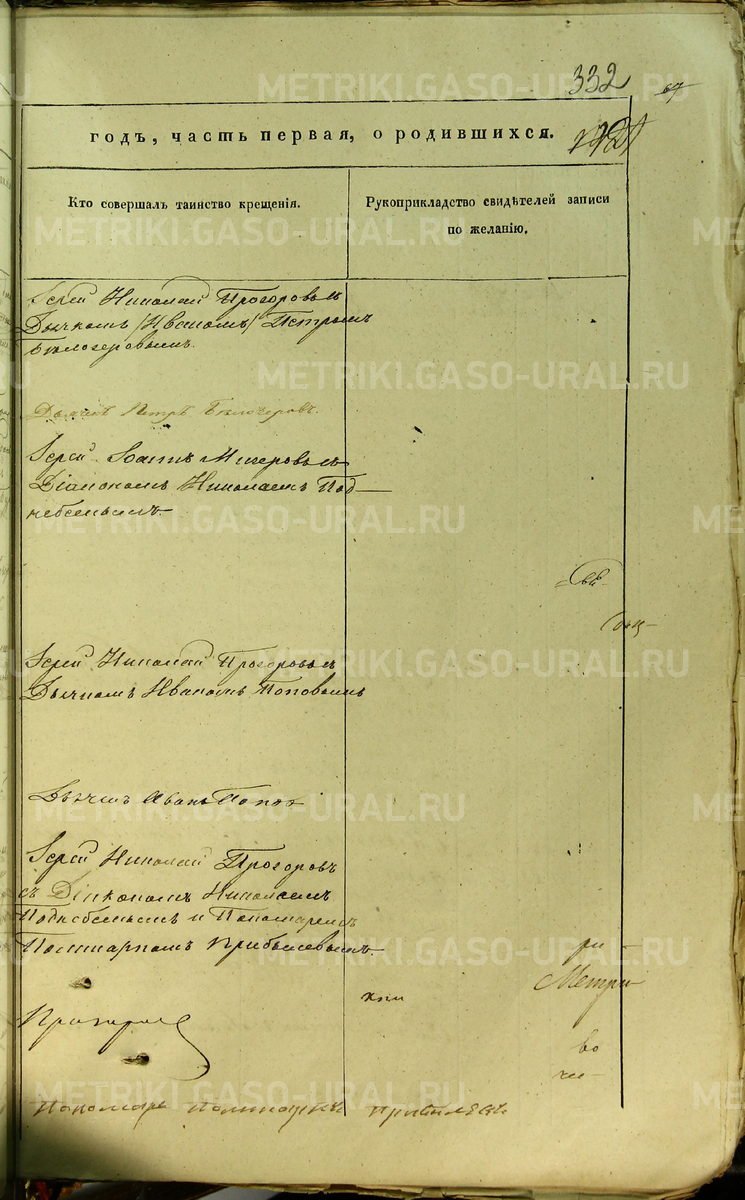 332
67
годъ, часть первая, о родившихся.
Кто совершалъ таинство крещенія.
Рукоприкладство свидѣтелей записи
по желанію.
Іерей Николай Прозоровъ съ
Дьячкомъ /Иваномъ/ Петромъ
Бѣлозеровымъ.
Дьячекъ Петръ Бѣлозеровъ.
Іерей Іоаннъ съ
Діакономъ Николаемъ Под-
небеснымъ.
Іерей Николай Прозоровъ съ
Дьячкомъ Иваномъ Поповымъ
Дьячекъ Иванъ Поповъ
Іерей Николай Прозоровъ
съ Діакономъ Николаемъ
Поднебеснымъ и Пономаремъ
Поликарпомъ Прибылевымъ.
ри-
Метри-
хіи
во
Пономарь Поликарпъ Прибылевъ
METRIKI.GASO-URAL.RU